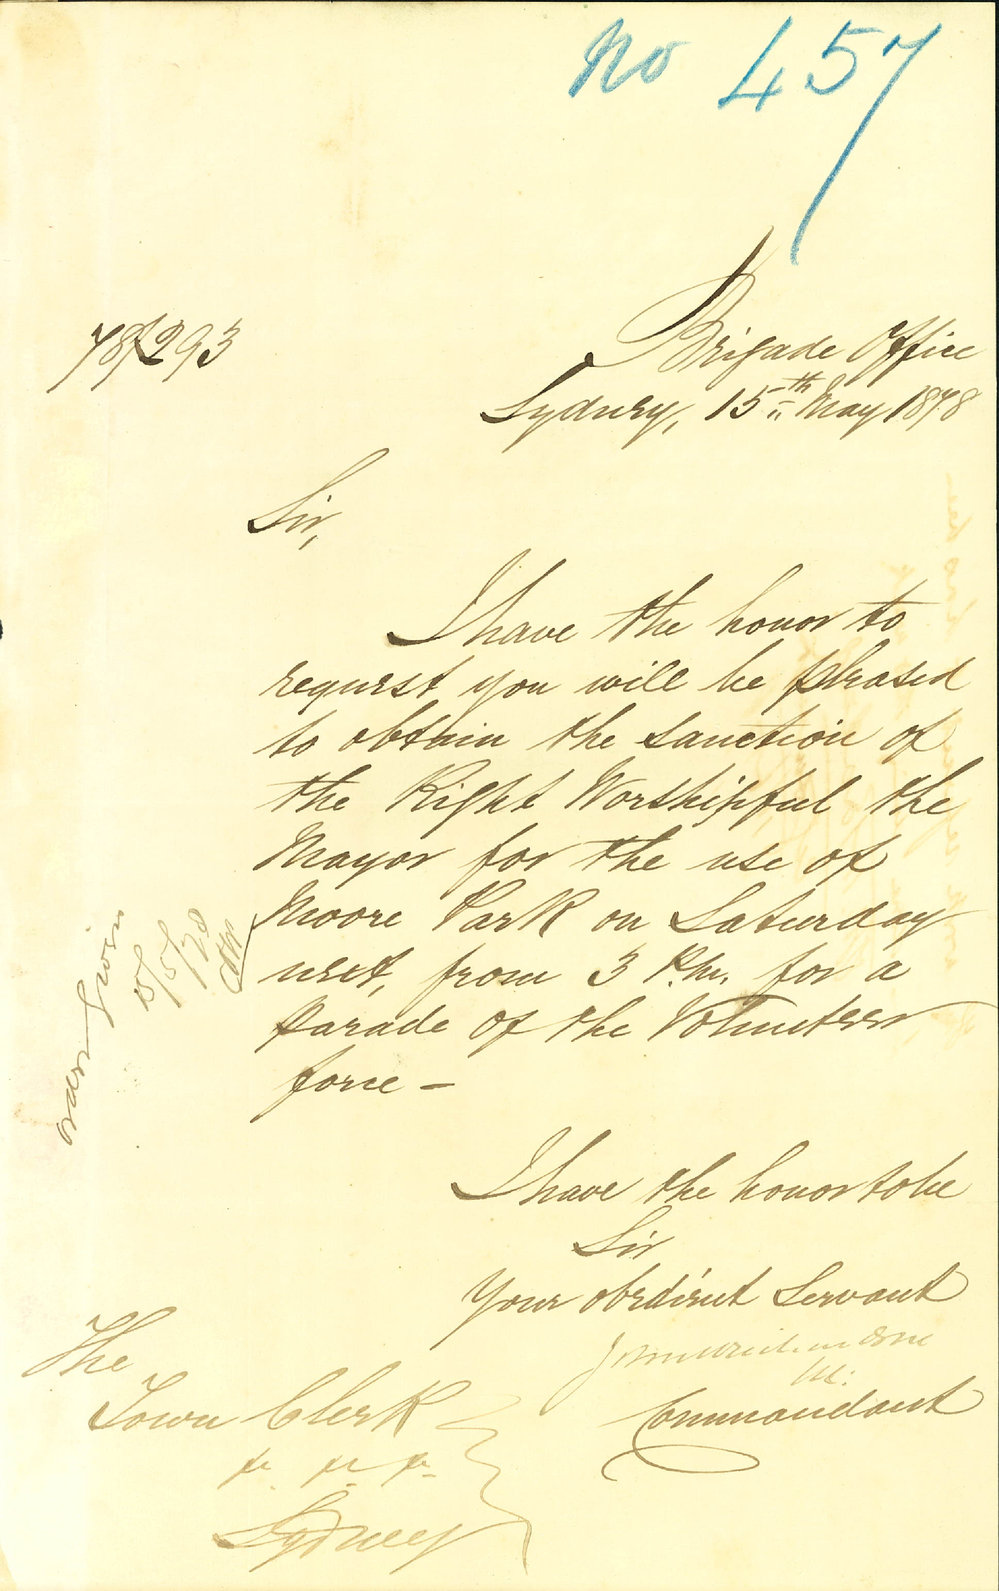 No 457
78/293
Brigade Office
Sydney, 15th May 1878
Sir,
I have the honor to
request you will be pleased
to obtain the sanction of
the Right Worshipful the
Mayor for the use of
Moore Park on Saturday
next, from 3 P.m. for a
parade of the Volunteer
force –
I have the honor to be
Sir
Your obedient Servant
Commandant
The
Town Clerk
Sydney
order given